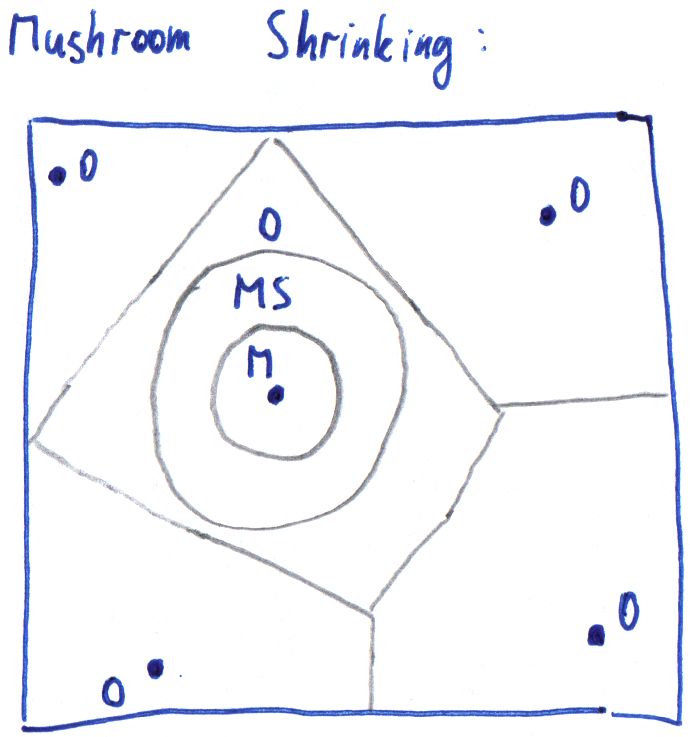 Mushroom Shrinking:
O
O
O
MS
M
O
O